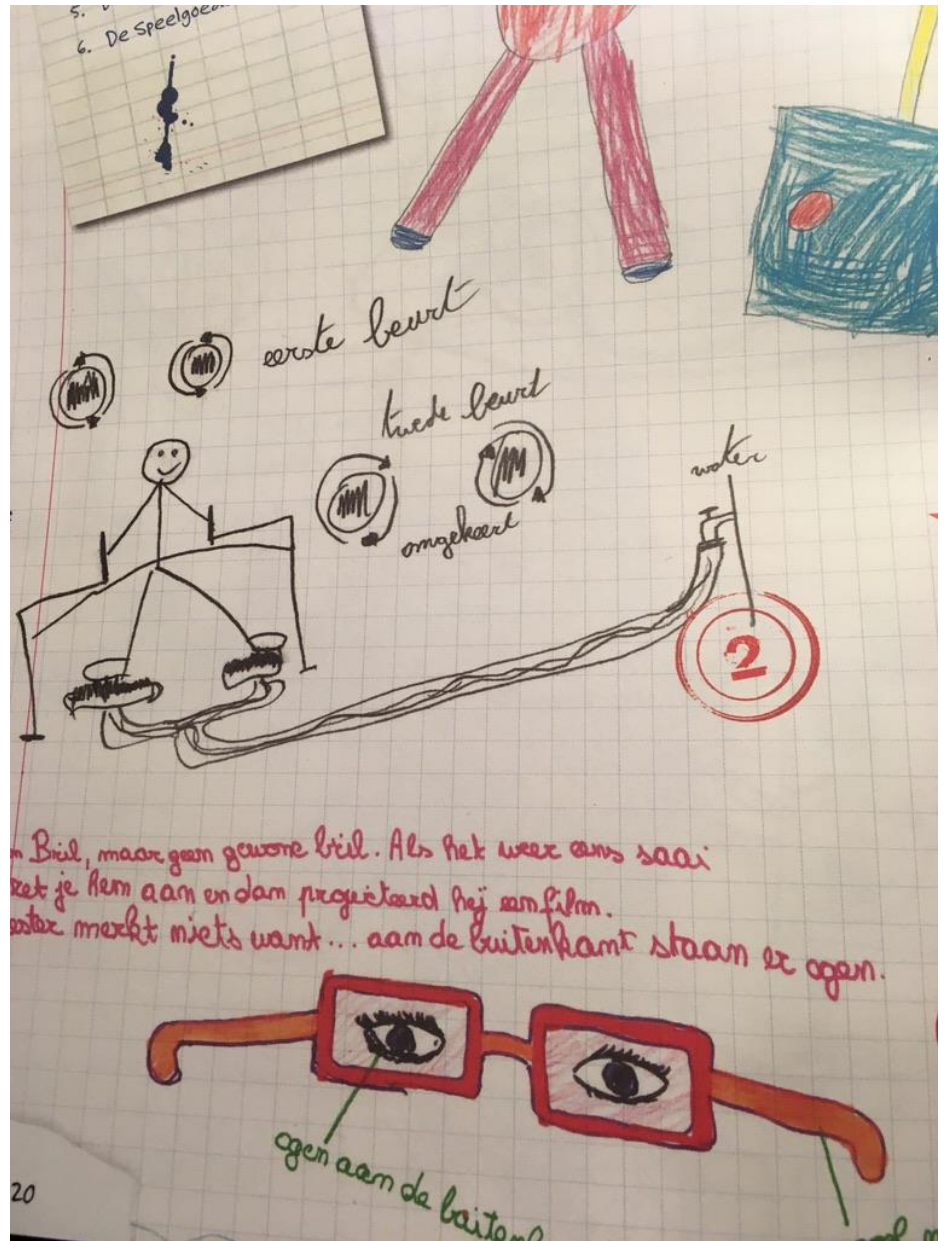 5.
6. De Speelgoed
eerste beurt
twede beurt
omgekeert
water
2
Bril, maar geen gewone bril. Als het weer eens saai
zet je hem aan en dam projecteerd hij een film.
ester merkt niets want... aan de buitenkant staan er ogen.
ogen aan de buitenk
20